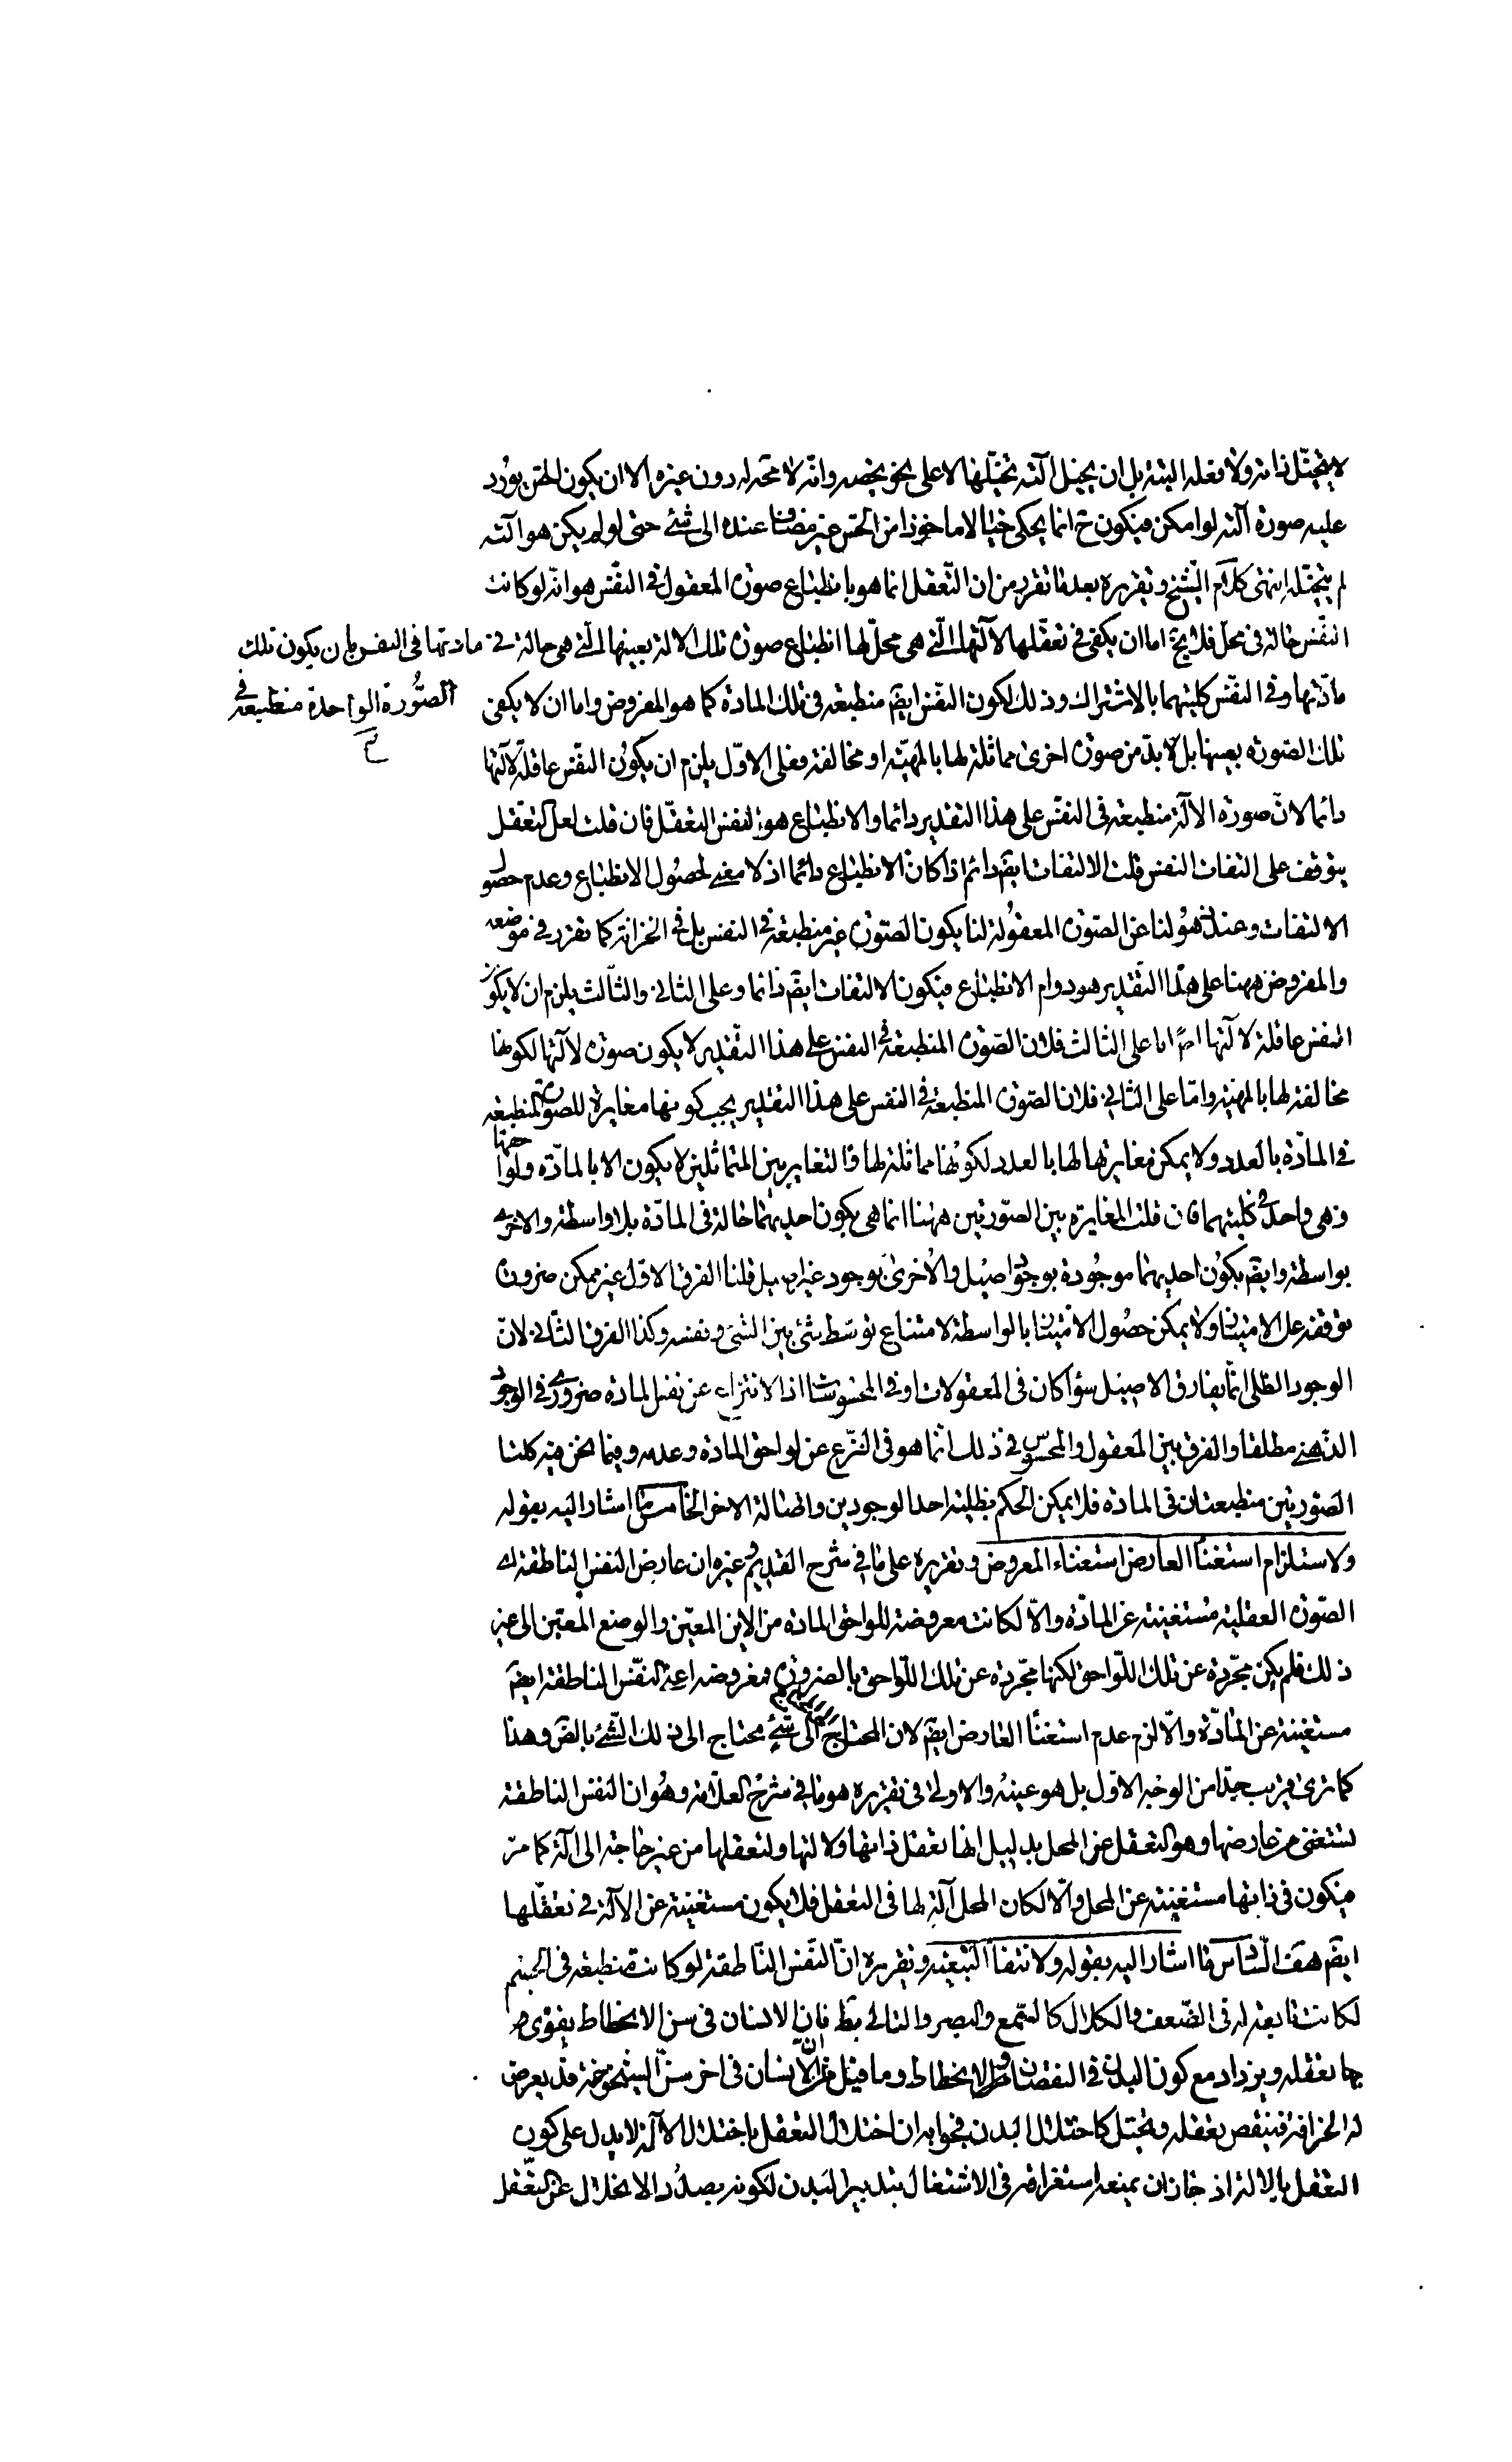 لا يتخيّل ذاته ولا فعله البتة بل ان يخيل آلته تخيّلها لا على نحو يخصه وانّه لا محة له دون غيره الا ان يكون الحسّ يورد
عليه صورة آلته لو امكن فيكون ح انما يحكى خيالا ماخوذا من الحس غير مضاف عنده الى شئ حتى لو لم يكن هو آلته
لم يتخيّله انتهى كلام الشيخ وتقريره بعد ما تقرر من ان التّعقل انما هو بانطباع صورة المعقول فى النفس هو انّه لو كانت
النفس حالة فى محلّ فلا يخ اما ان يكفى فى تعقّلها لآلتها الّتى هى محلّ لها انطباع صورة تلك الالة بعينها الّتى هى حالة فى مادتها فى النفس بان يكون تلك
الصّورة الواحدة منطبعة فى
مادّتها وفى النفس كليهما بالاشتراك وذلك لكون النفس ايضَ منطبعة فى تلك المادة كما هو المفروض واما ان لا يكفى
تلك الصورة بعينها بل لا بدّ من صورة اخرى مماثلة لها بالمهيّة او مخالفة فعلى الاوّل يلزم ان يكون النفس عاقلة لآلتها
دائما لانّ صورة الالة منطبعة فى النفس على هذا التقدير دائما والانطباع هو نفس التعقّل فان قلت لعل التعقّل
يتوقف على التفات النفس قلت الالتفات ايضَ دائم اذا كان الانطباع دائما اذ لا معنى لحصول الانطباع وعدم حصول
الالتفات وعند ذهولنا عن الصورة المعقولة لنا يكون الصورة غير منطبعة فى النفس بل فى الخزانة كما تقرر فى موضعه
والمفروض ههنا على هذا التقدير هو دوام الانطباع فيكون الالتفات ايضَ دائما وعلى الثانى والثالث يلزم ان لا يكون
النفس عاقلة لآلتها اصلاً اما على الثالث فلان الصورة المنطبعة فى النفس على هذا التقدير لا يكون صورة لآلتها لكونها
مخالفة لها بالمهيّة وامّا على الثانى فلان الصورة المنطبعة فى النفس على هذا التقدير يجب كونها مغايرة للصورة المنطبعة
فى المادّة بالعدد ولا يمكن مغايرتها لها بالعدد لكونها مماثلة لها والتغاير بين المتماثلين لا يكون الا بالمادّة ولواحقها
وهى واحدة فى كليهما فان قلت المغايرة بين الصّورتين ههنا انما هى بكون احديهما حالة فى المادّة بلا واسطة والاخرى
بواسطة وايضَ بكون احديهما موجودة بوجود اصيل والاخرى بوجود غير اصيل قلنا الفرق الاوّل غير ممكن ضرورة
توقفه على الاثنينية ولا يمكن حصول الاثنينية بالواسطة لامتناع توسّط شئ بين الشئ ونفسه وكذا الفرق الثانى لانّ
الوجود الظلى انّما يفارق الاصيل سواء كان فى المعقولات او فى المحسوسات اذ الانتزاع عن نفس المادة ضرورى فى الوجود
الذهنى مطلقا والفرق بين المعقول والمحسوس فى ذلك انّما هو فى النزع عن لواحق المادة وعدمه وفيما نحن فيه كلتا
الصّورتين منطبعتان فى المادة فلا يمكن الحكم بظلية احد الوجودين واصالة الاخر الخامس ما اشار اليه بقوله
ولاستلزام استغناء العارض استغناء المعروض وتقريره على ما فى شرح القديم وغيره ان عارض النفس الناطقة اى
الصورة العقلية مستغنية عن المادّة والّا لكانت معروضة للواحق المادة من الاين المعيّن والوضع المعيّن الى غير
ذلك فلم يكن مجرّدة عن تلك اللّواحق لكنها مجّردة عن تلك اللّواحق بالضرورة فمعروضه اعنى النفس الناطقة ايضَ
مستغنية عن المادّة والّا لزم عدم استغناء العارض ايضَ لان المحتاج الى شئ محتاج الى ذلك الشّئ بالضَ وهذا
كما ترى قريب جدّا من الوجه الاوّل بل هو عينه والاولى فى تقريره هو ما فى شرح العلّامة وهو ان النفس الناطقة
تستغنى فى عارضها وهو التعقل عن المحل بدليل انها تعقل ذاتها ولآلتها ولتعقلها من غير حاجة الى آلة كما مرّ
فيكون فى ذاتها مستغنية عن المحل والّا لكان المحل آلة لها فى التعقل فلا يكون مستغنية عن الآلة فى تعقّلها
ايضَ هف السّادس ما اشار اليه بقوله ولانتفاء التبعية وتقريره انّ النفس النّاطقة لو كانت منطبعة فى الجسم
لكانت تابعة له فى الضّعف والكلال كالسّمع والبصر والتالى بط فان الانسان فى سن الانحطاط يقوى
بها تعقله ويزداد مع كون البدن فى النقصان والانحطاط وما قيل من انّ الانسان فى اخر سنّ الشيخوخة قد يعرض
له الخرافة فينقص تعقله ويختل كاختلال البدن فجوابه ان اختلال التعقل باختلال الآلة لا يدل على كون
التعقل بالالة اذ جاز ان يمنعه استغراقه فى الاشتغال بتدبير البدن لكونه بصدد الانحلال عن التعّقل